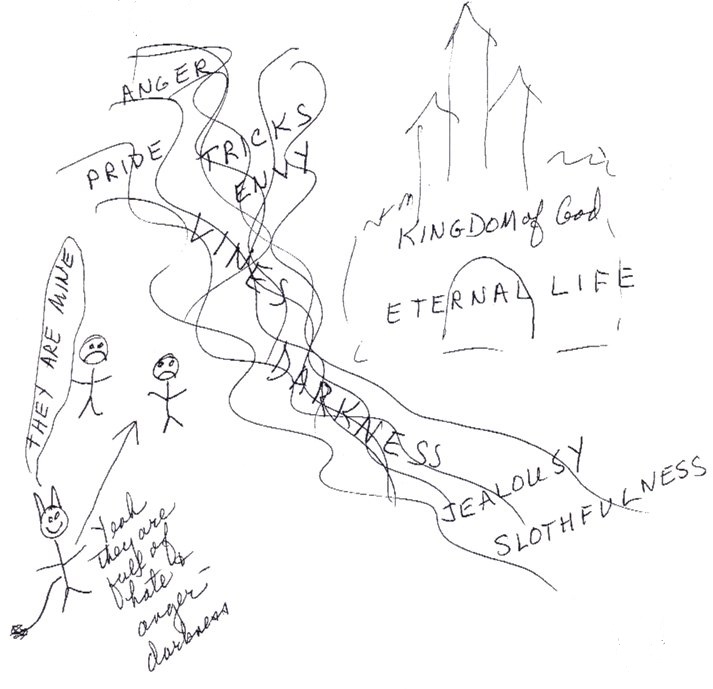 ANGER
PRIDE
TRICKS
ENVY
VINES
DARKNESS
JEALOUSY
SLOTHFULNESS
KINGDOM of God
ETERNAL LIFE
THEY ARE MINE
Yeah
they are
full of
hate &
anger -
darkness